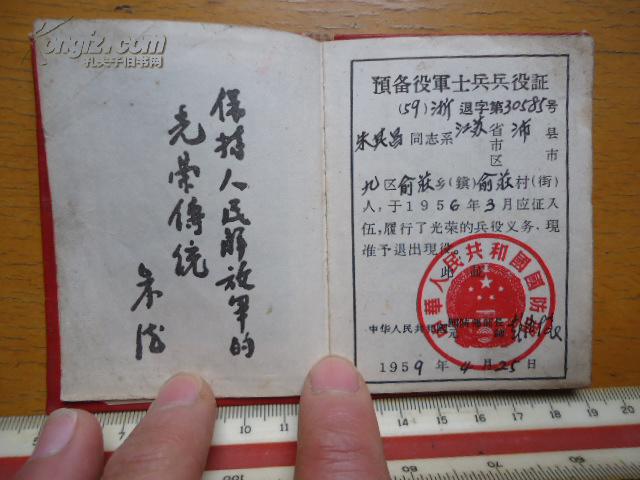 保持人民解放軍的
光荣傳統
朱德
預备役軍士兵兵役証
(59)浙退字第30585号
同志系江苏省市区 沛县市
北区俞莊乡(鎮)俞莊村(街)
人,于1956年3月应征入
伍,履行了光荣的兵役义务。現
准予退出現役。
此証
中华人民共和國
1959年4月25日
中華人民共和國國防
kongfz.com
孔夫子旧书网
5 7 8 9 10 11 12 13 14 15 16 17 18 19 20